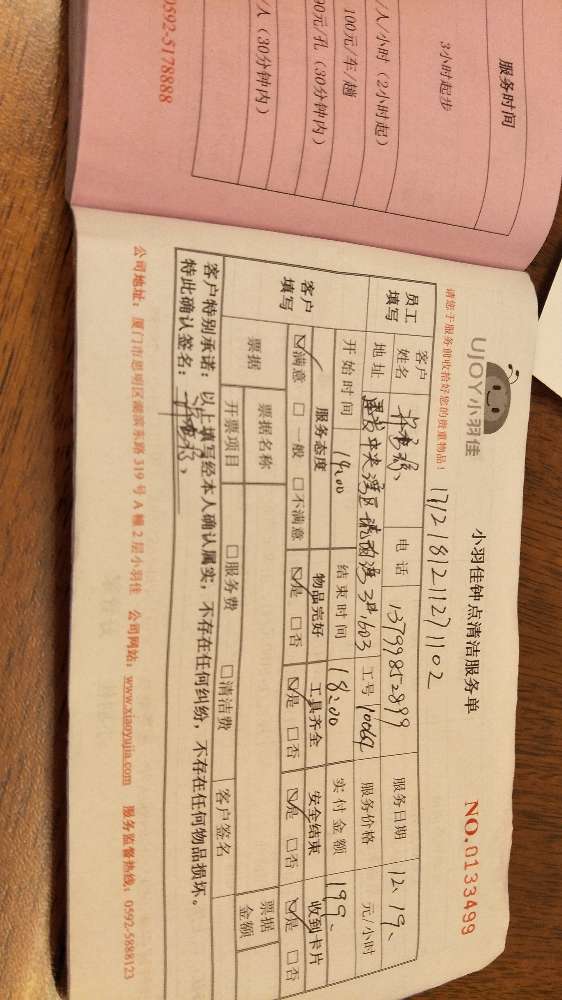 服务时间
3小时起步
/人/小时（2小时起）
100元/车/趟
90元/孔（30分钟内）
/人（30分钟内）
0592-5178888
UJOY小羽佳
小羽佳钟点清洁服务单
NO.0133499
请您于服务前收拾好您的贵重物品！
1712181211271102
员工填写
客户姓名
电话 13799852899
服务日期 12.19、
地址
中央湾区 3# 1603
工号 10064
服务价格 元/小时
开始时间 14:00
结束时间 18:00
实付金额 199、
客户填写
服务态度 物品完好 工具齐全 安全结束 收到卡片
☑满意 □一般 □不满意 ☑是 □否 ☑是 □否 ☑是 □否 ☑是 □否
票据
票据名称
票据金额
开票项目 □服务费 □清洁费 客户签名
客户特别承诺：以上填写经本人确认属实，不存在任何纠纷，不存在任何物品损坏。
特此确认签名：
公司地址：厦门市思明区湖滨东路319号A幢2层小羽佳 公司网站：www.xiaoyujia.com 服务监督热线：0592-5888123